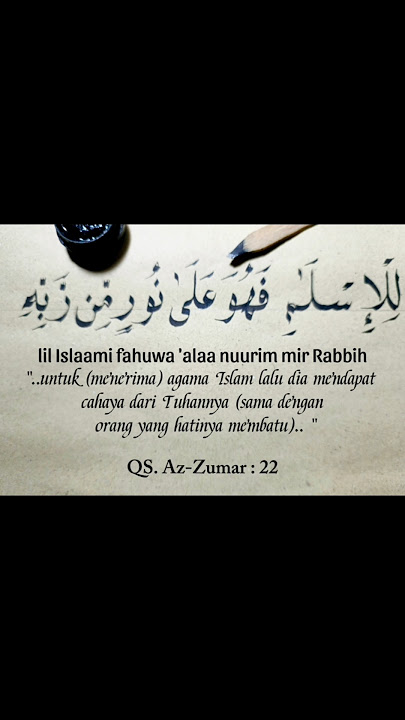 لِلْإِسْلَٰمِ فَهُوَ عَلَىٰ نُورٍ مِّن رَّبِّهِ
lil Islaami fahuwa 'alaa nuurim mir Rabbih
"..untuk (menerima) agama Islam lalu dia mendapat
cahaya dari Tuhannya (sama dengan
orang yang hatinya membatu).. "
QS. Az-Zumar : 22